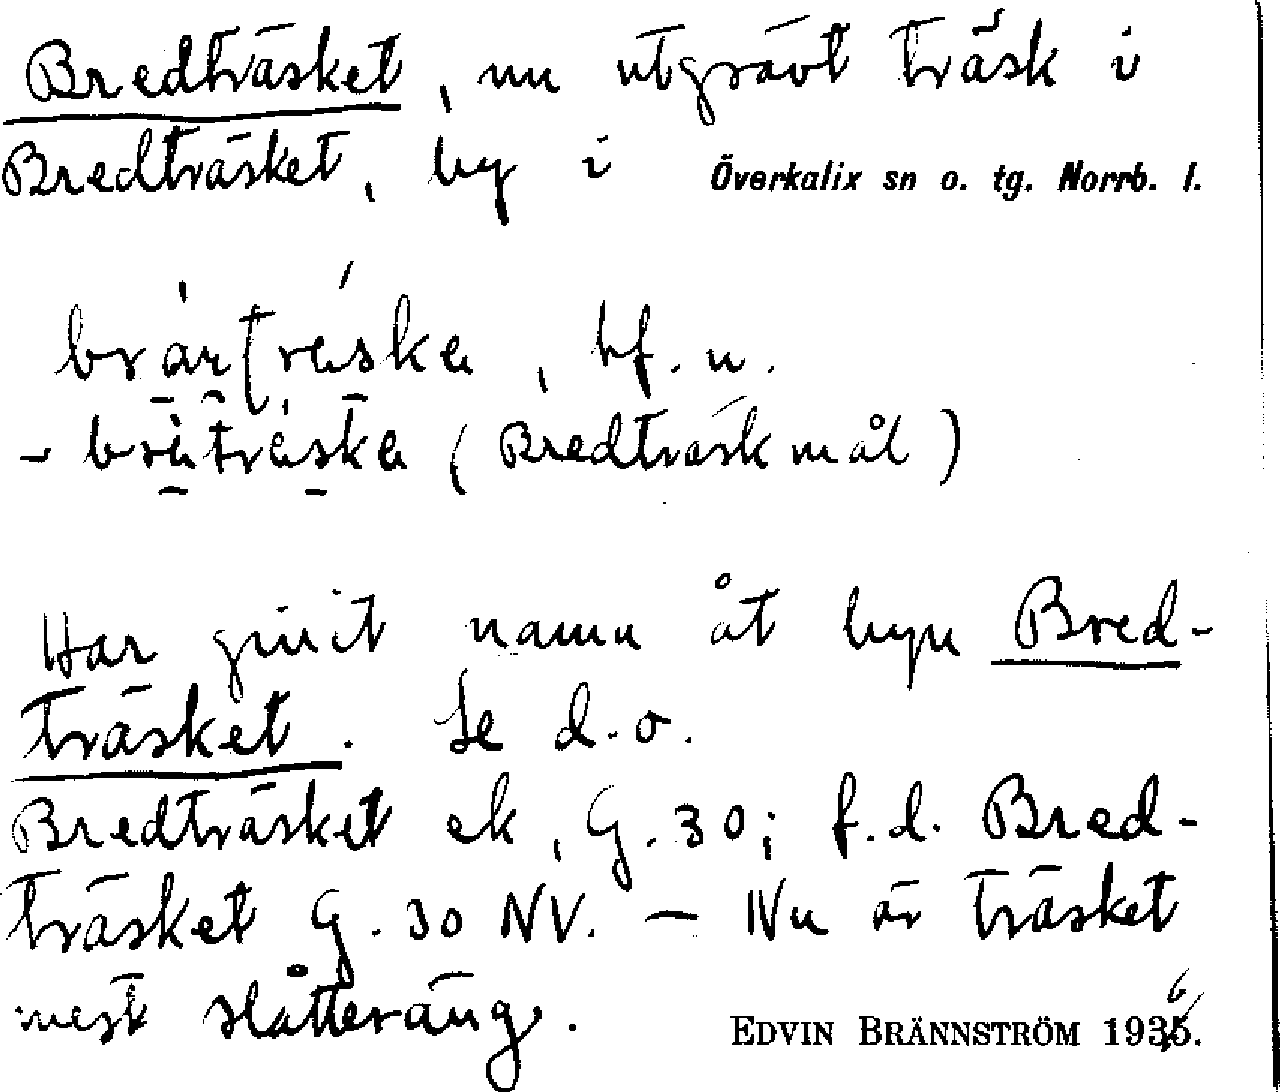 Bredträsket, nu utgrävt träsk i
Bredträsket, by i Överkalix sn o. tg. Norrb. l.
bf. n.
(Bredträskmål)
Har givit namn åt byn Bred-
träsket. Se d.o.
Bredträsket ek, G.30; f.d. Bred-
träsket G.30 NV. – Nu är träsket
mest slåtteräng.
EDVIN BRÄNNSTRÖM 1936.